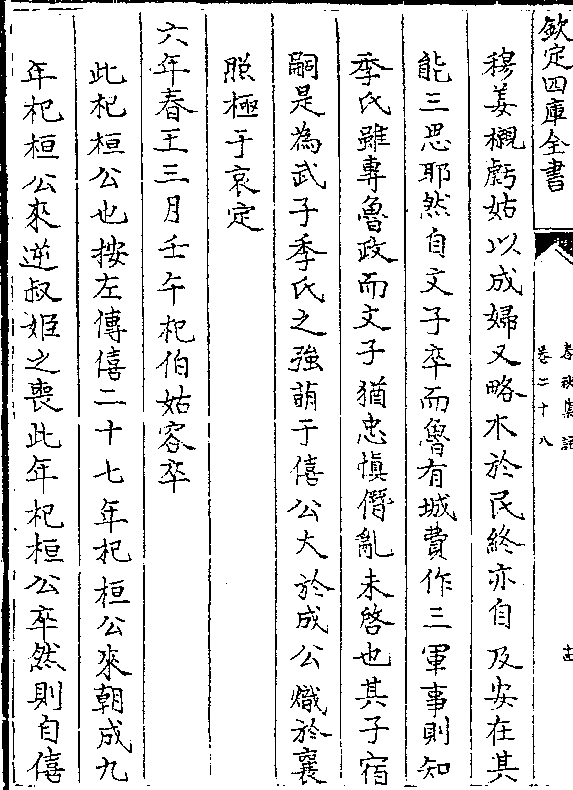 欽定四庫全書
春秋集註
卷二十八
穆姜櫬虧姑以成婦又略木於民終亦自及安在其
能三思耶然自文子卒而魯有城費作三軍事則知
季氏雖專魯政而文子猶忠慎僭亂未啓也其子宿
嗣是為武子季氏之強萌于僖公大於成公熾於襄
照極于哀定
六年春王三月壬午杞伯姑容卒
此杞桓公也按左傳僖二十七年杞桓公來朝成九
年杞桓公來逆叔姬之喪此年杞桓公卒然則自僖